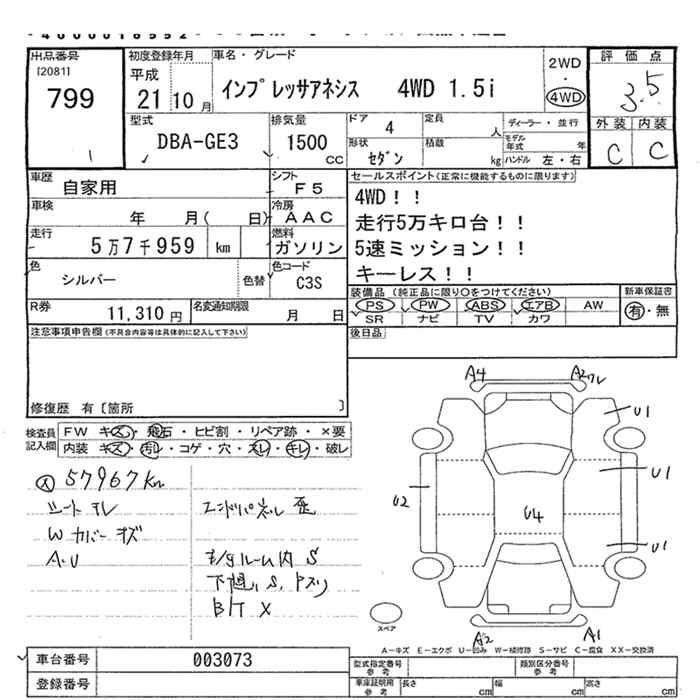 出品番号
[2081]
799
初度登録年月
平成
21 10 月
車名・グレード
インプレッサアネシス 4WD 1.5i
2WD
・
4WD
評価点
3.5
外装 内装
C C
型式
DBA-GE3
排気量
1500
CC
ドア 4
形状
セダン
定員
人
積載
kg
ディーラー・並行
モデル
年式 年
ハンドル 左・右
車歴
自家用
シフト
F5
車検
年 月( 日)
冷房
AAC
走行
5万7千959 km
燃料
ガソリン
色
シルバー
色替
色コード
C3S
R券
11,310 円
名変通知期限
月 日
セールスポイント(正常に機能するものに限ります)
4WD!!
走行5万キロ台!!
5速ミッション!!
キーレス!!
装備品 (純正品に限り○をつけてください)
PS PW ABS エアB AW
SR ナビ TV カワ
新車保証書
有・無
後日品
注意事項申告欄(不具合内容等は具体的に記入して下さい)
修復歴 有〔箇所 〕
検査員
記入欄
FW キズ・飛石・ヒビ割・リペア跡・×要
内装 キズ・汚レ・コゲ・穴・スレ・キレ・破レ
57967km
シートスレ
Wカバーキズ
A・U
エンドパネル
ルーム内 S
下廻りS、
B/T X
A4
A2
U1
U1
U2
U4
U1
A2
A1
スペア
A-キズ E-エクボ U-凹み W-補修跡 S-サビ C-腐食 XX-交換済
車台番号
003073
登録番号
型式指定番号
参考
類別区分番号
参考
車庫証明用
参考
長さ cm 幅 cm 高さ cm